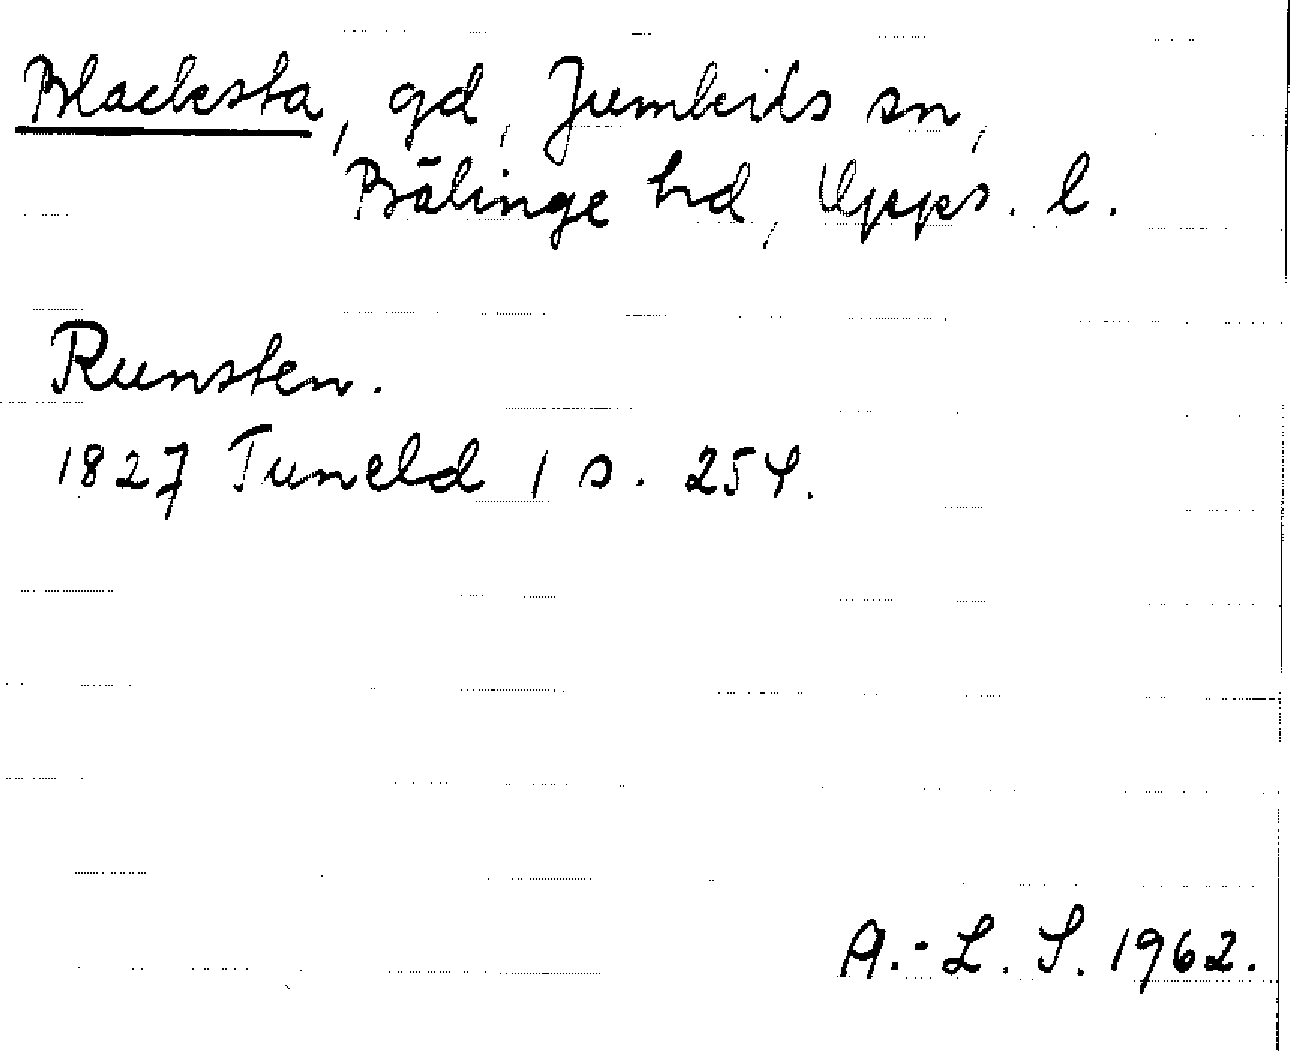 Blacksta, gd, Jumkils sn,
Bälinge hd, Upps. l.
Runsten.
1827 Tuneld 1 s. 254.
A.-L. S. 1962.